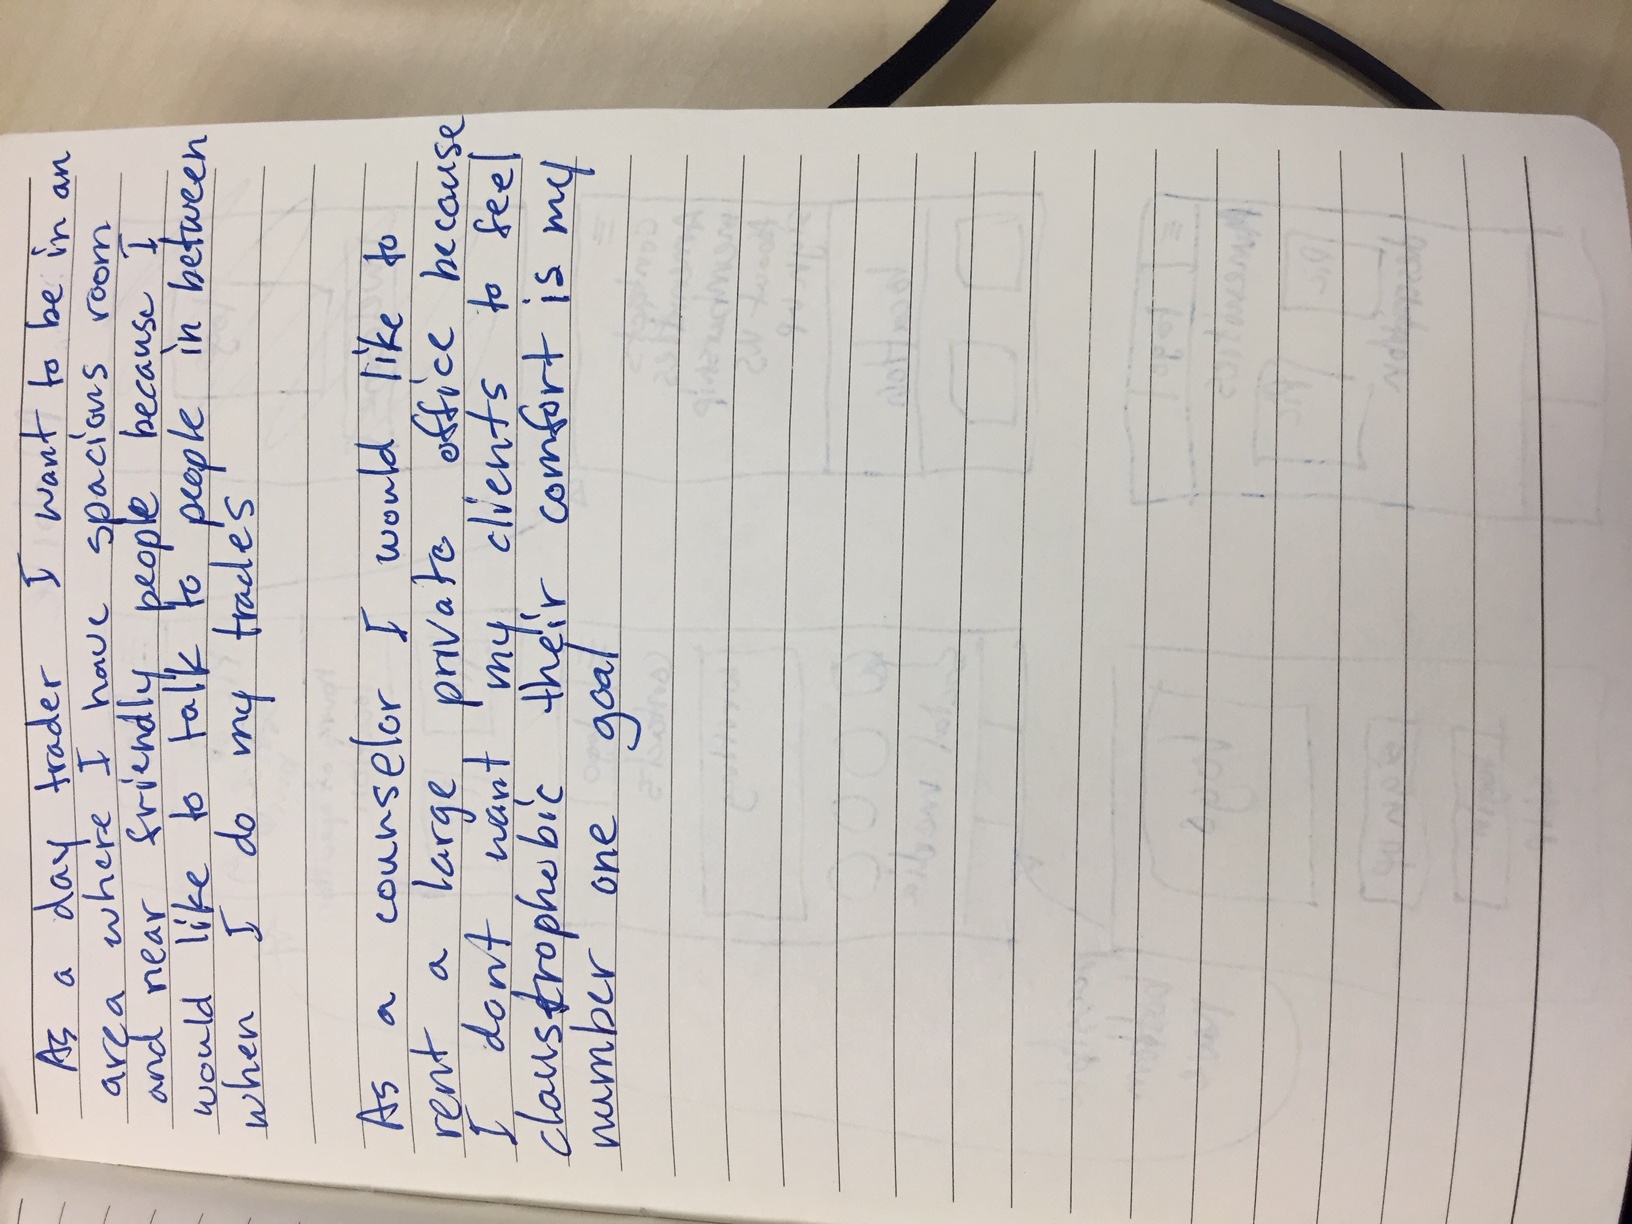 As a day trader I want to be in an
area where I have spacious room
and near friendly people because I
would like to talk to people in between
when I do my trades
As a counselor I would like to
rent a large private office because
I dont want my clients to feel
claustrophobic their comfort is my
number one goal